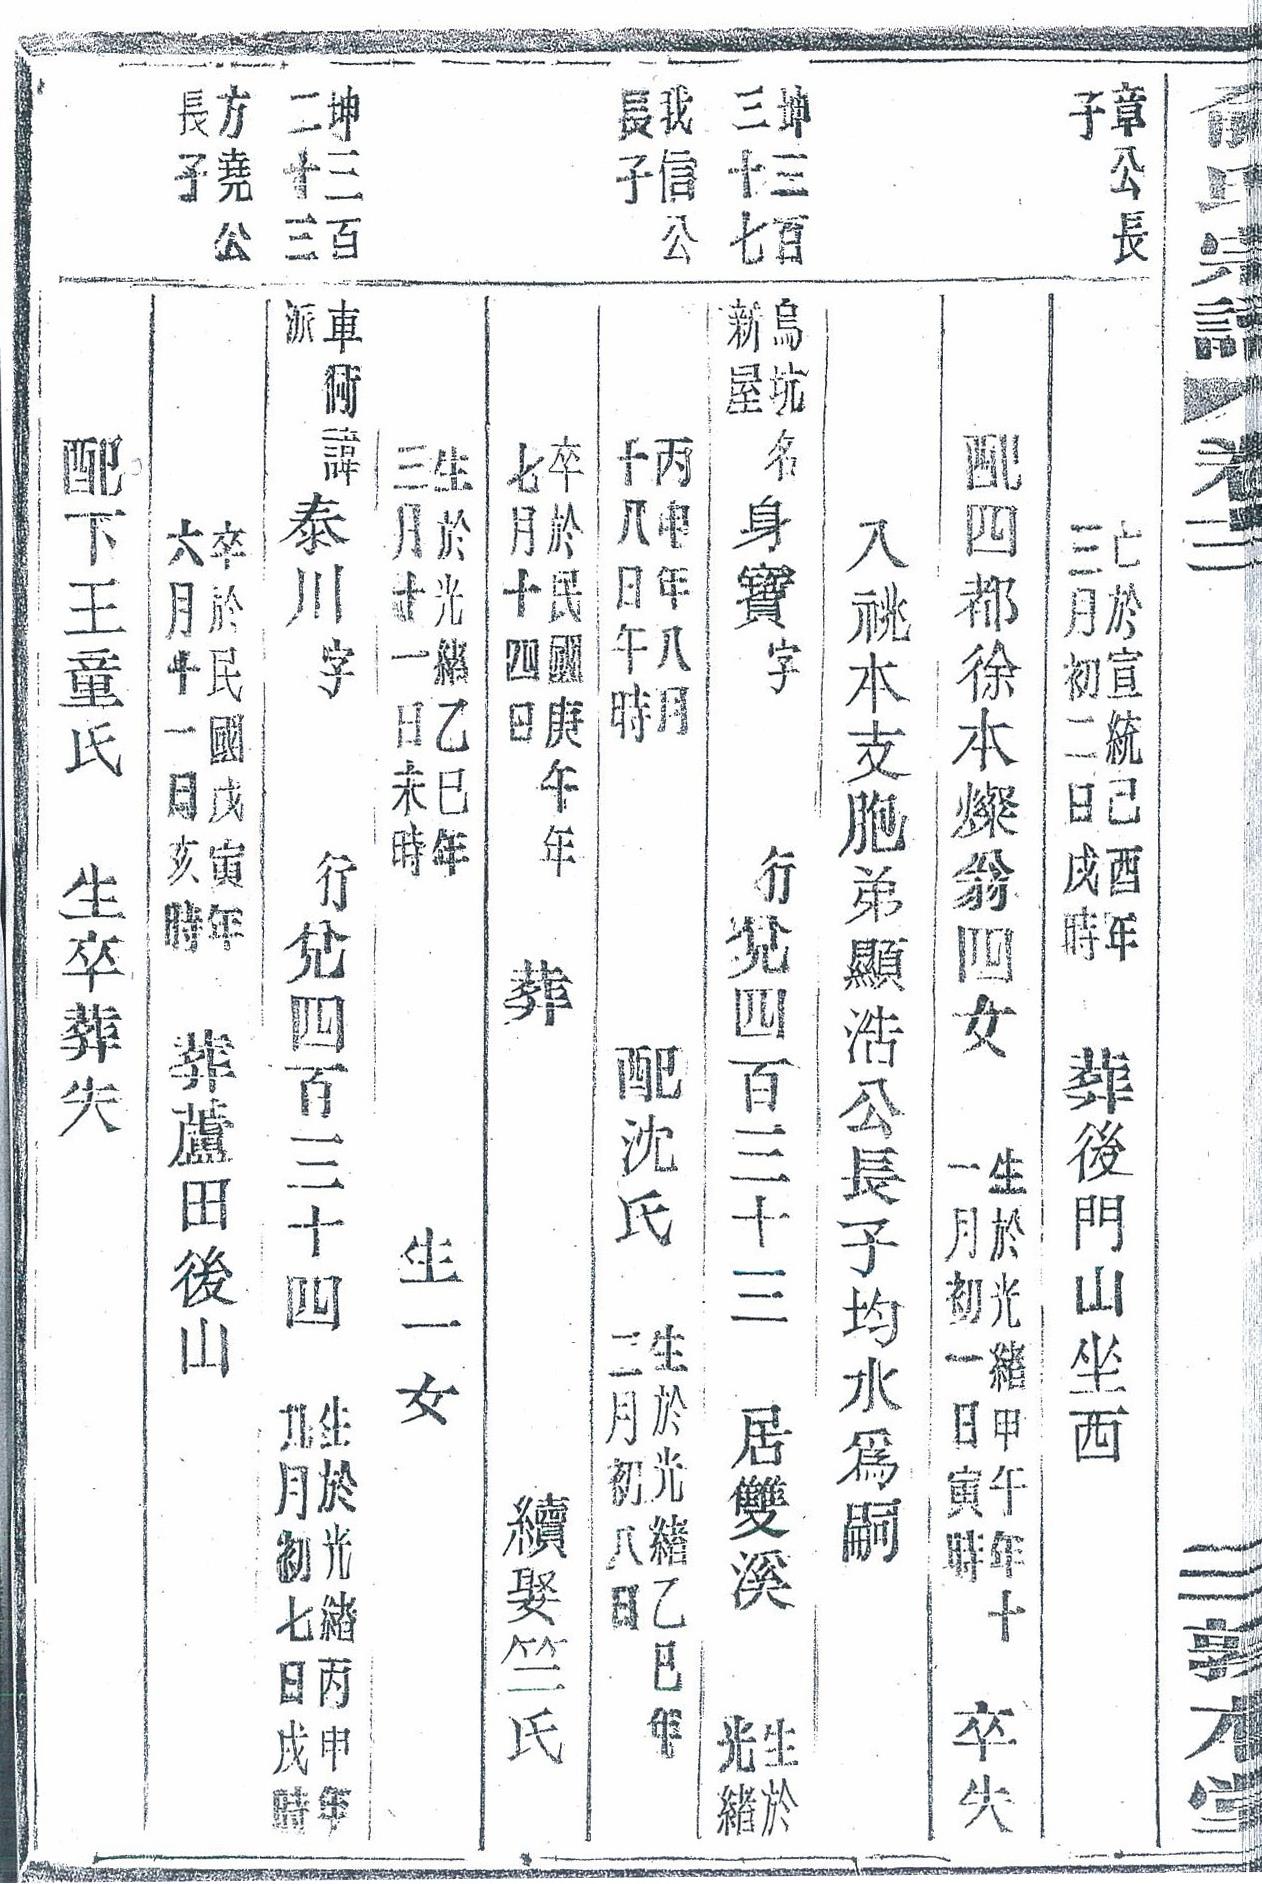 俞氏宗譜
卷三
敦本堂
章公長
子
亡於宣統己酉年
三月初二日戌時
葬後門山坐西
配四都徐本燦翁四女
生於光緒甲午年十
一月初一日寅時
卒失
入祧本支胞弟顯浩公長子均水爲嗣
坤三百
三十七
烏坑
新屋
名身寶字
行兌四百三十三
居雙溪
生於
光緒
我信公
長子
丙申年八月
十八日午時
配沈氏
生於光緒乙巳年
二月初八日
卒於民國庚午年
七月十四日
葬
續娶竺氏
生於光緒乙巳年
三月廿一日未時
生一女
坤三百
二十三
車衕
派
諱泰川字
行兌四百三十四
生於光緒丙申年
九月初七日戌時
方堯公
長子
卒於民國戊寅年
六月十一日亥時
葬蘆田後山
配下王童氏
生卒葬失